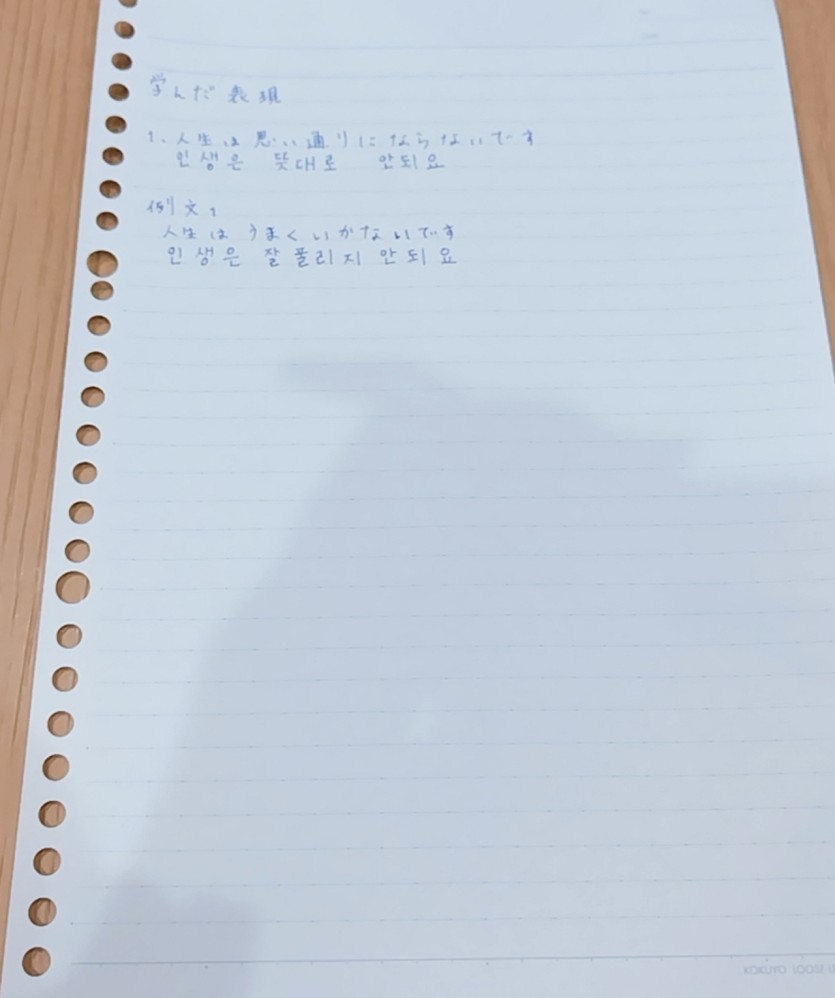 学んだ表現
1. 人生は思い通りにならないです
인생은 뜻대로 안되요
例文1
人生はうまくいかないです
인생은 잘 풀리지 안되요
KOKUYO LOOSE-LE